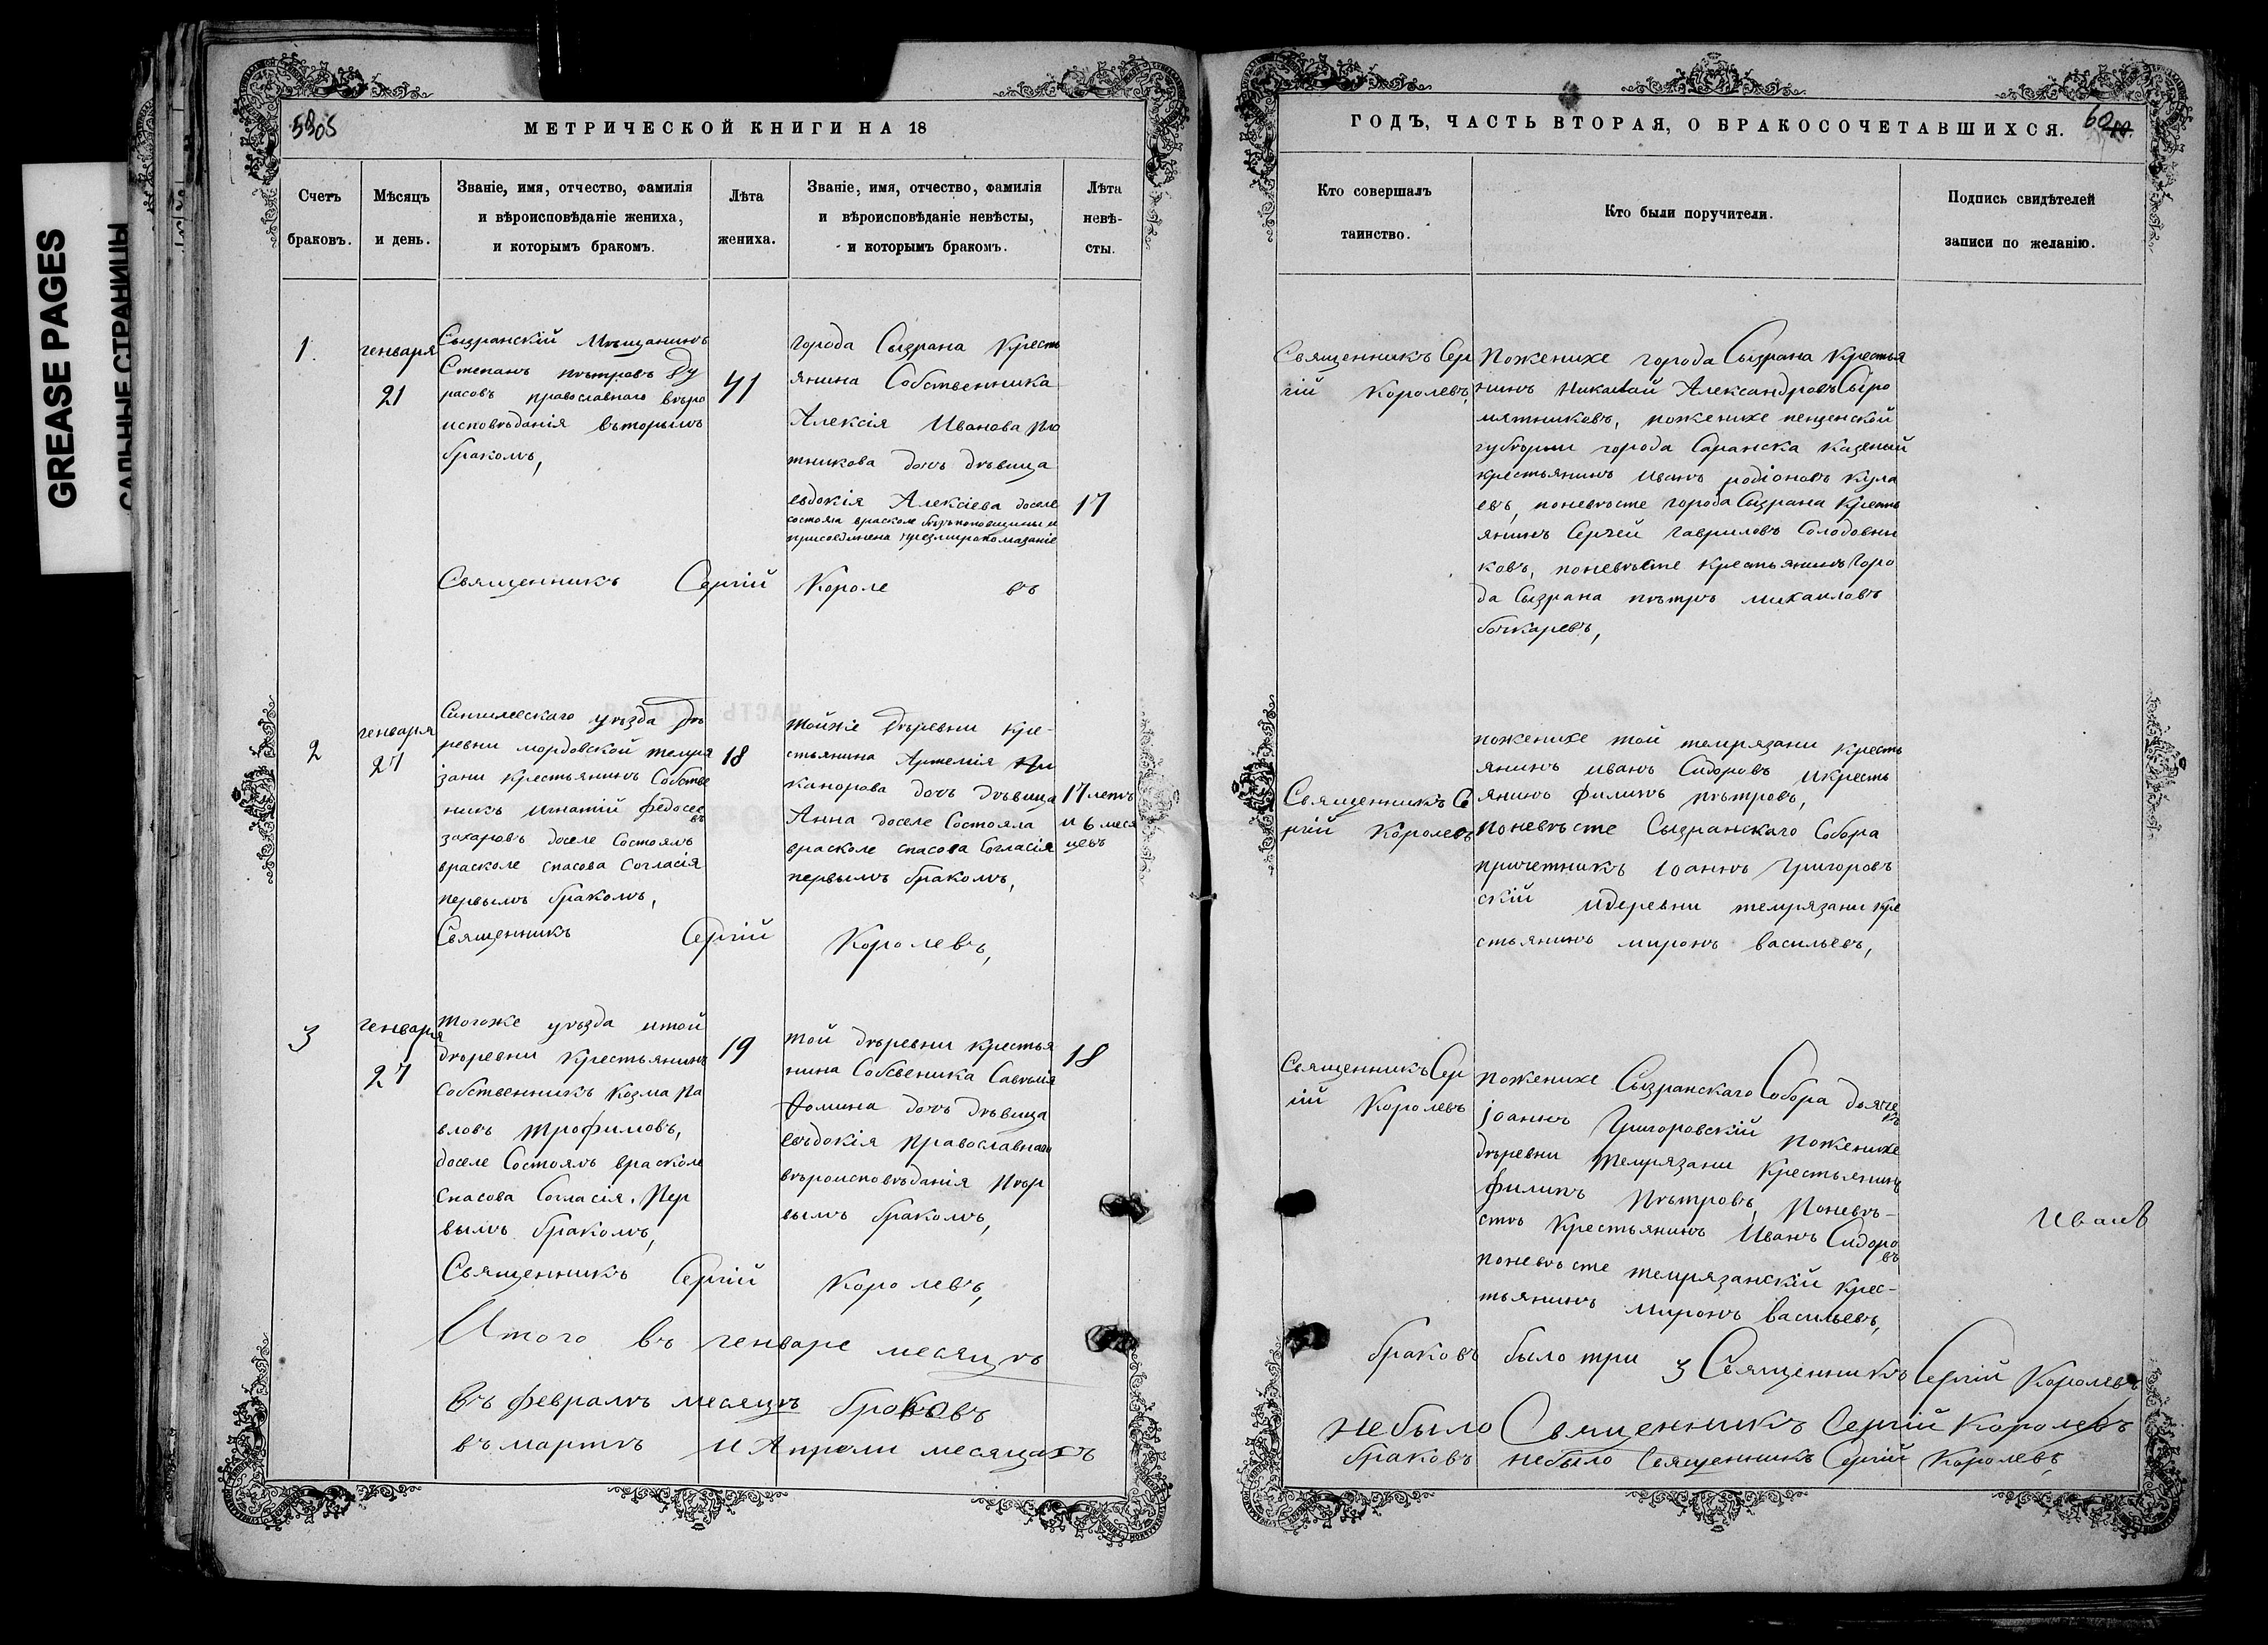 GREASE PAGES
САЛЬНЫЕ СТРАНИЦЫ
МЕТРИЧЕСКОЙ КНИГИ НА 18
Счетъ
браковъ.
Мѣсяцъ
и день.
Званіе, имя, отчество, фамилія
и вѣроисповѣданіе жениха,
и которымъ бракомъ.
Лѣта
жениха.
Званіе, имя, отчество, фамилія
и вѣроисповѣданіе невѣсты,
и которымъ бракомъ.
Лѣта
невѣ-
сты.
1.
генваря
21
Сызранскій Мѣщанинъ
Степанъ пѣтровъ Ду
расовъ православнаго вѣро
исповѣданія вторымъ
бракомъ,
41
города Сызрана Кресть
янина Собственника
Алексія Иванова Пло
тникова дочь дѣвица
евдокія Алексіева доселе
состояла врасколе безъпоповщины и
присоединена чрезмиропомазаніе
17
Священникъ Сергій Королевъ
2
генваря
27
Сингилеевскаго уѣзда Дѣ
ревни мордовской темря
зани Крестьянинъ Собстве
никъ Игнатій федосеевъ
захаровъ доселе Состоялъ
врасколе спасова Согласія
первымъ бракомъ,
18
тойже Дѣревни Кре-
стьянина Артемія Ни
канорова дочь дѣвица
Анна доселе Состояла
врасколе спасова Согласія
первымъ бракомъ,
17 летъ
и 6 меся
цевъ
Священникъ Сергій Королевъ,
3
генваря
27
тогоже уѣзда итой
дѣревни Крестьянинъ
Собственникъ Козма Па
вловъ Трофимовъ,
доселе Состоялъ врасколе
Спасова Согласія. Пер
вымъ бракомъ,
19
той дѣревни крестья
нина Собсвеника Савѣлія
Фомина дочь дѣвица
евъдокія Православнаго
вѣроисповѣданія Пѣр
вымъ бракомъ,
18
Священникъ Сергій Королевъ,
Итого въ генваре месяцѣ
Въ февралѣ месяцѣ браковъ
въ мартѣ и Апрели месяцахъ
ГОДЪ, ЧАСТЬ ВТОРАЯ, О БРАКОСОЧЕТАВШИХСЯ.
60
Кто совершалъ
таинство.
Кто были поручители.
Подпись свидѣтелей
записи по желанію.
Священникъ Сер
гій Королевъ,
Поженихе города Сызрана Крестья
нинъ Николай Александровъ Сыро
мятниковъ, поженихе пензенской
губѣрніи города Саранска Казеный
крестьянинъ Иванъ родіоновъ Кула
евъ, поневѣсте города Сызрана Кресть
янинъ Сергей Гавриловъ Солодовни
ковъ, поневѣсте Крестьянинъ Горо
да Сызрана пѣтръ михаиловъ
бочкаревъ,
Священникъ Се
ргій Королевъ
поженихе той темрязани кресть
янинъ иванъ Сидоровъ Икресть
янинъ филипъ пѣтровъ,
Поневѣсте Сызранскаго Собора
причетникъ Іоаннъ Григоровъ
скій идеревни темрязани кре
стьянинъ миронъ васильевъ,
Священникъ Сер
гій Королевъ
поженихе Сызранскаго Собора дьячекъ
Іоаннъ Григоровскій Поженихе
дѣревни темрязани Крестьянинъ
филипъ Пѣтровъ, Поневѣ-
стѣ Крестьянинъ Иванъ Сидоровъ
поневѣсте темрязанскій крес-
тьянинъ миронъ васильевъ,
браковъ было три 3 Священникъ Сергій Королевъ
небыло Священникъ Сергій Королевъ
браковъ небыло Священникъ Сергій Королевъ,